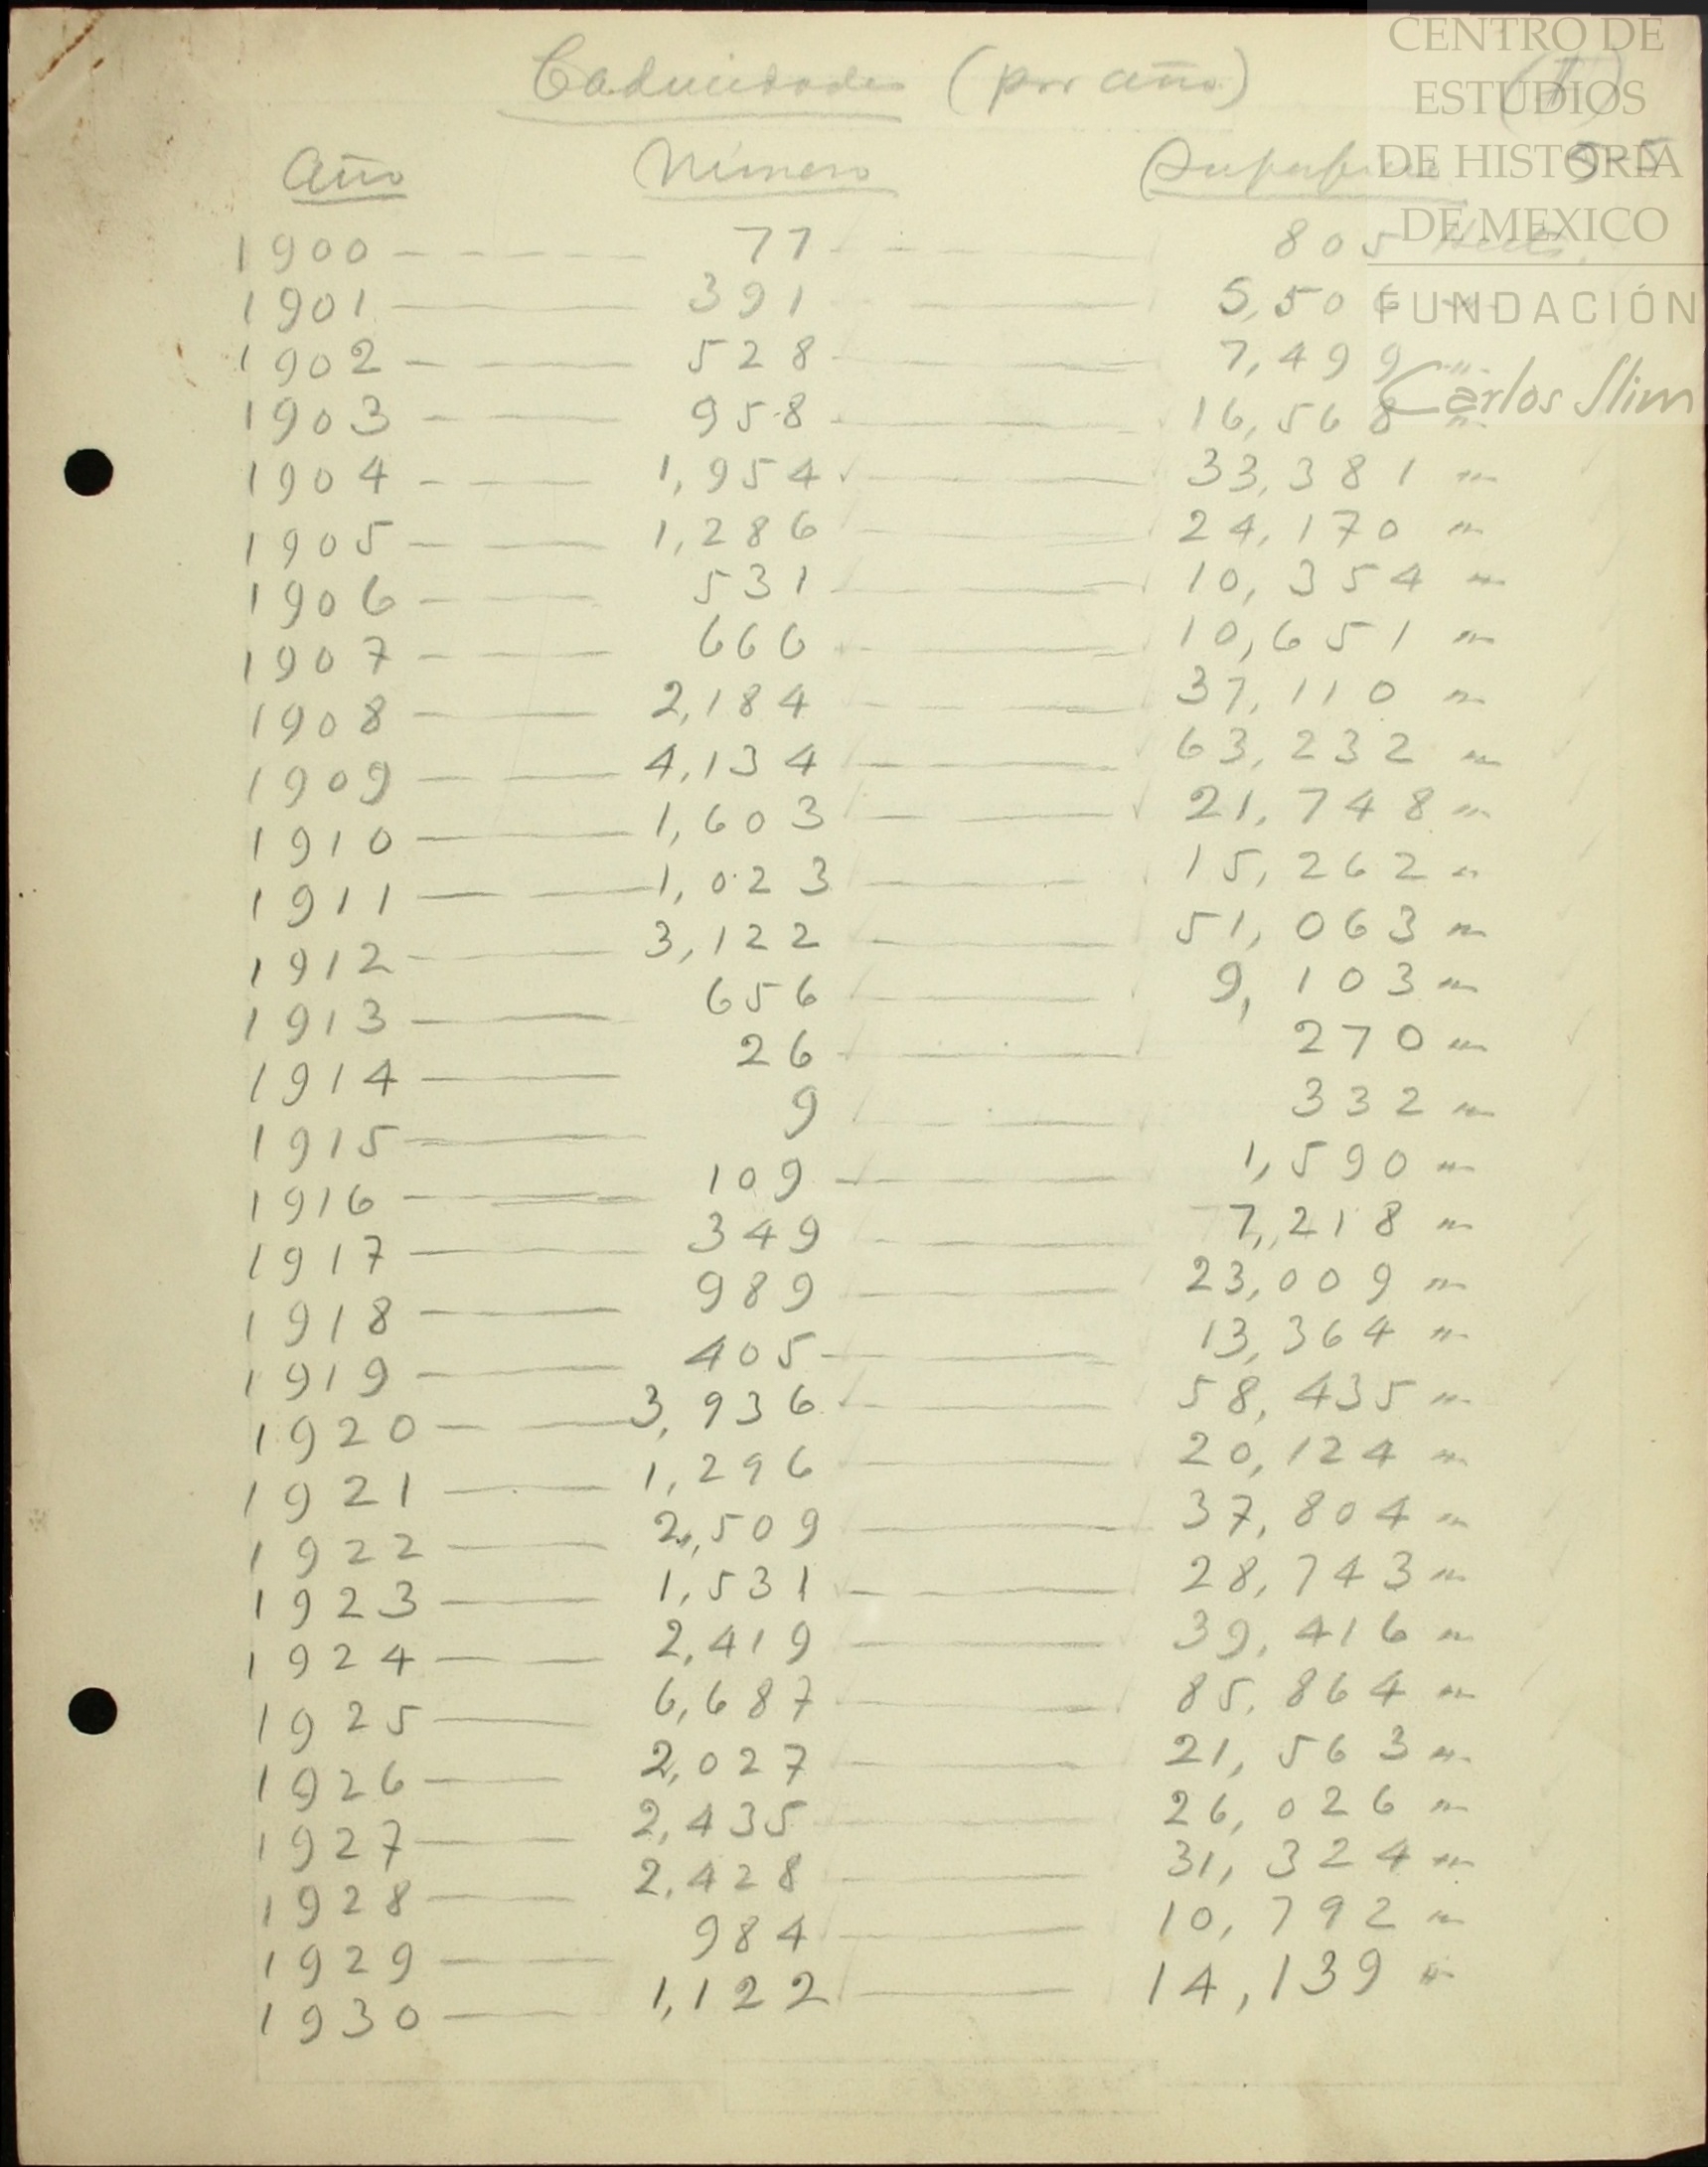 CENTRO DE
ESTUDIOS
DE HISTORIA
DE MEXICO
FUNDACIÓN
Carlos Slim
Caducidades (por año)
Año Número Superficie
1900 77 805 Hects.
1901 391 5,506 "
1902 528 7,499 "
1903 958 16,568 "
1904 1,954 33,381 "
1905 1,286 24,170 "
1906 531 10,354 "
1907 666 10,651 "
1908 2,184 37,110 "
1909 4,134 63,232 "
1910 1,603 21,748 "
1911 1,023 15,262 "
1912 3,122 51,063 "
1913 656 9,103 "
1914 26 270 "
1915 9 332 "
1916 109 1,590 "
1917 349 7,218 "
1918 989 23,009 "
1919 405 13,364 "
1920 3,936 58,435 "
1921 1,296 20,124 "
1922 2,509 37,804 "
1923 1,531 28,743 "
1924 2,419 39,416 "
1925 6,687 85,864 "
1926 2,027 21,563 "
1927 2,435 26,026 "
1928 2,428 31,324 "
1929 984 10,792 "
1930 1,122 14,139 "